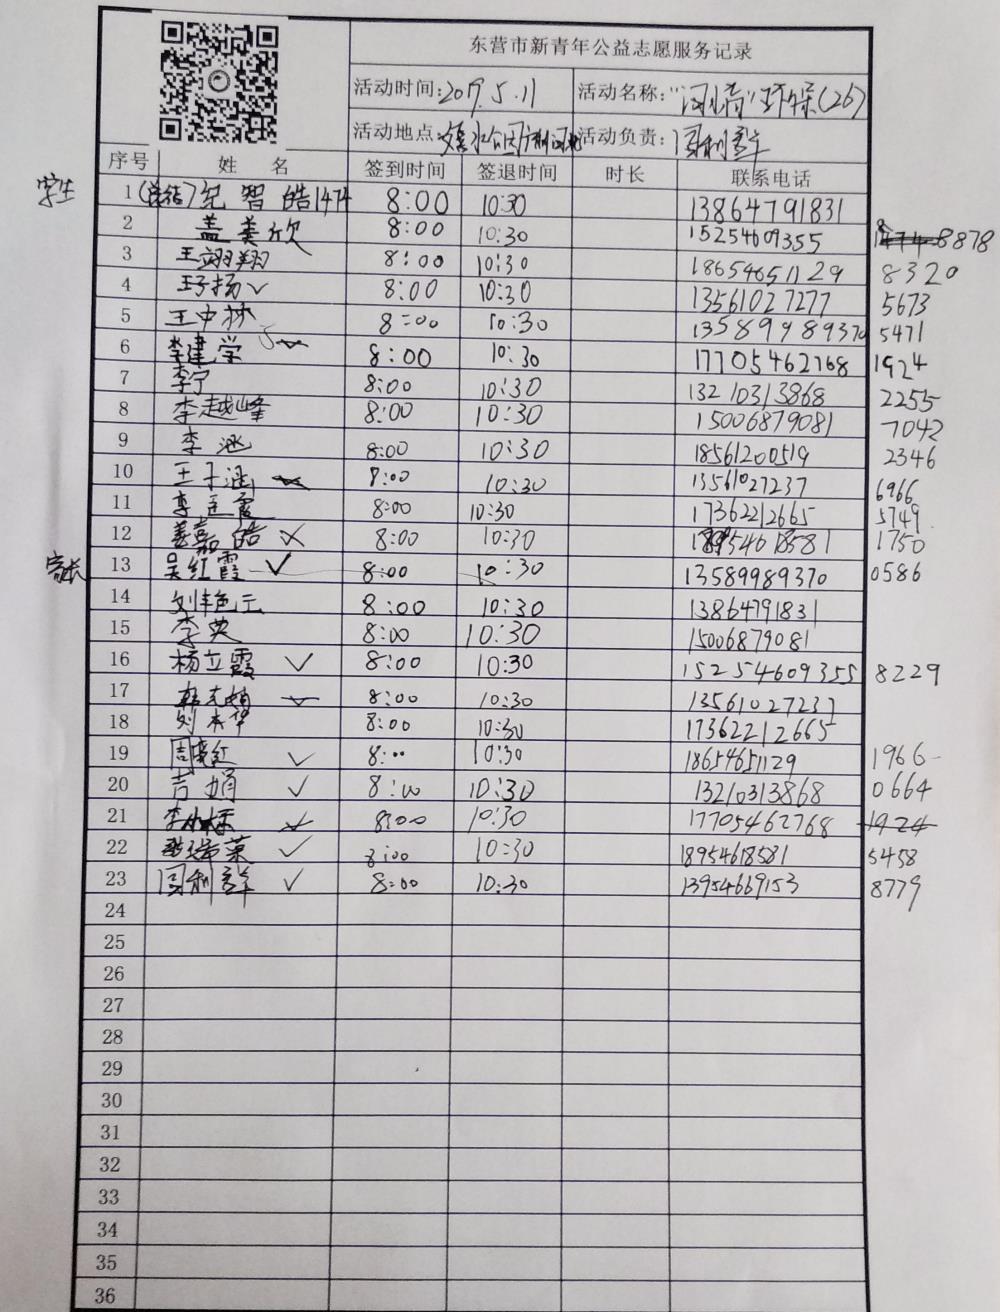 东营市新青年公益志愿服务记录
活动时间: 2019.5.11 活动名称: "河小青"环保(26)
活动地点: 活动负责: 周利群
序号 姓 名 签到时间 签退时间 时长 联系电话
学生 1 纪智皓1474 8:00 10:30 13864791831
2 盖美欣 8:00 10:30 15254609355 8878
3 王翊翔 8:00 10:30 18654651129 8320
4 王子扬✓ 8:00 10:30 13561027277 5673
5 王中 8:00 10:30 13589989370 5471
6 李建学 8:00 10:30 17705462768 1924
7 李宁 8:00 10:30 13210313868 2255
8 李越峰 8:00 10:30 15006879081 7042
9 李 8:00 10:30 18561200519 2346
10 王子涵 8:00 10:30 13561027237 6966
11 李 霞 8:00 10:30 17362212665 5749
12 姜嘉皓 8:00 10:30 18954618581 1750
家长 13 吴红霞 ✓ 8:00 10:30 13589989370 0586
14 刘艳元 8:00 10:30 13864791831
15 李 8:00 10:30 15006879081
16 杨立霞 ✓ 8:00 10:30 15254609355 8229
17 韩 8:00 10:30 13561027237
18 刘本华 8:00 10:30 17362212665
19 周 红 ✓ 8:00 10:30 18654651129 1966
20 吉娟 ✓ 8:00 10:30 13210313868 0664
21 李 8:00 10:30 17705462768 1924
22 ✓ 8:00 10:30 18954618581 5458
23 周利群 ✓ 8:00 10:30 13954669153 8779
24
25
26
27
28
29
30
31
32
33
34
35
36